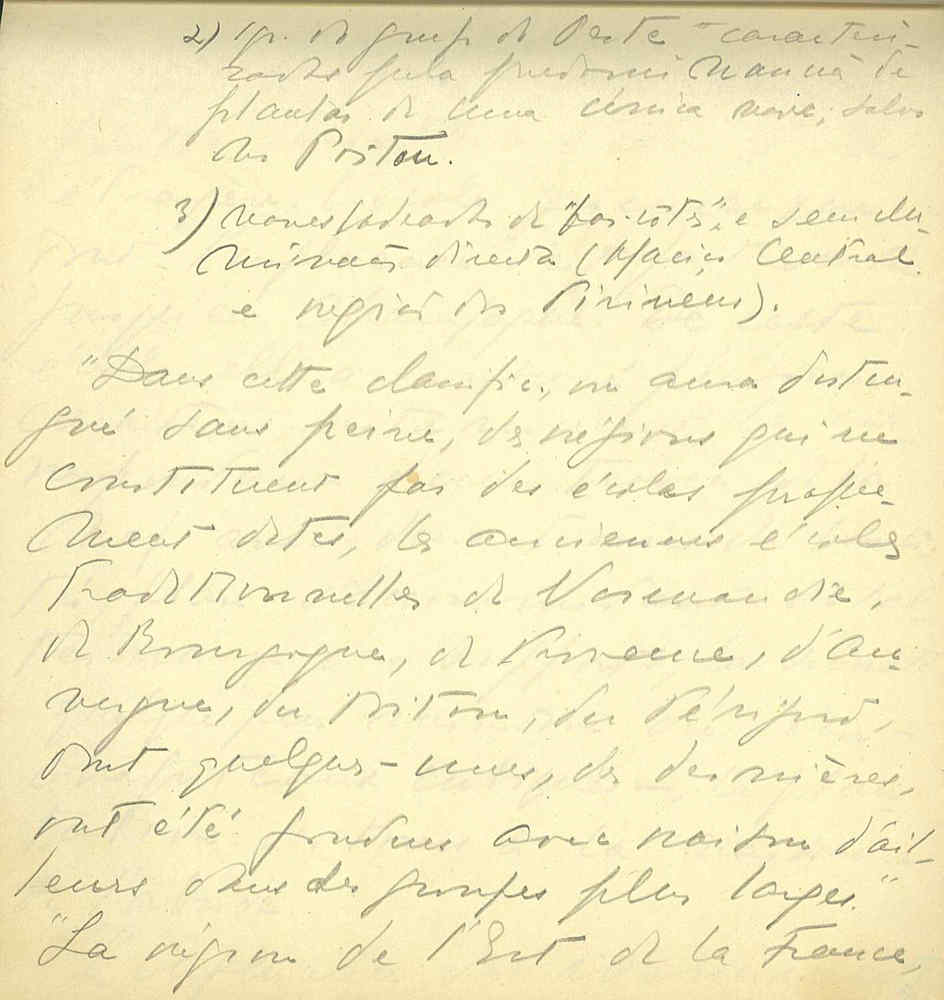 2) Igr. do grupo do Oeste caracteri-
zadas pela predominancia de
plantas de uma única nave, salvo
do Poitou.
3) naves ladeadas de "bas-côtés", e sem ilu-
minação directa (Maciço Central
e região dos Pirineus).
"Dans cette classific., on aura distin-
gué sans peine, des régions qui ne
constituent pas des écoles propre-
ment dites, les anciennes écoles
traditionnelles de Normandie,
de Bourgogne, de Provence, d'Au-
vergne, du Poitou, du Périgord,
dont quelques-unes, des dernières,
ont été fondues avec raison d'ail-
leurs dans des groupes plus larges."
"La région de l'Est de la France,